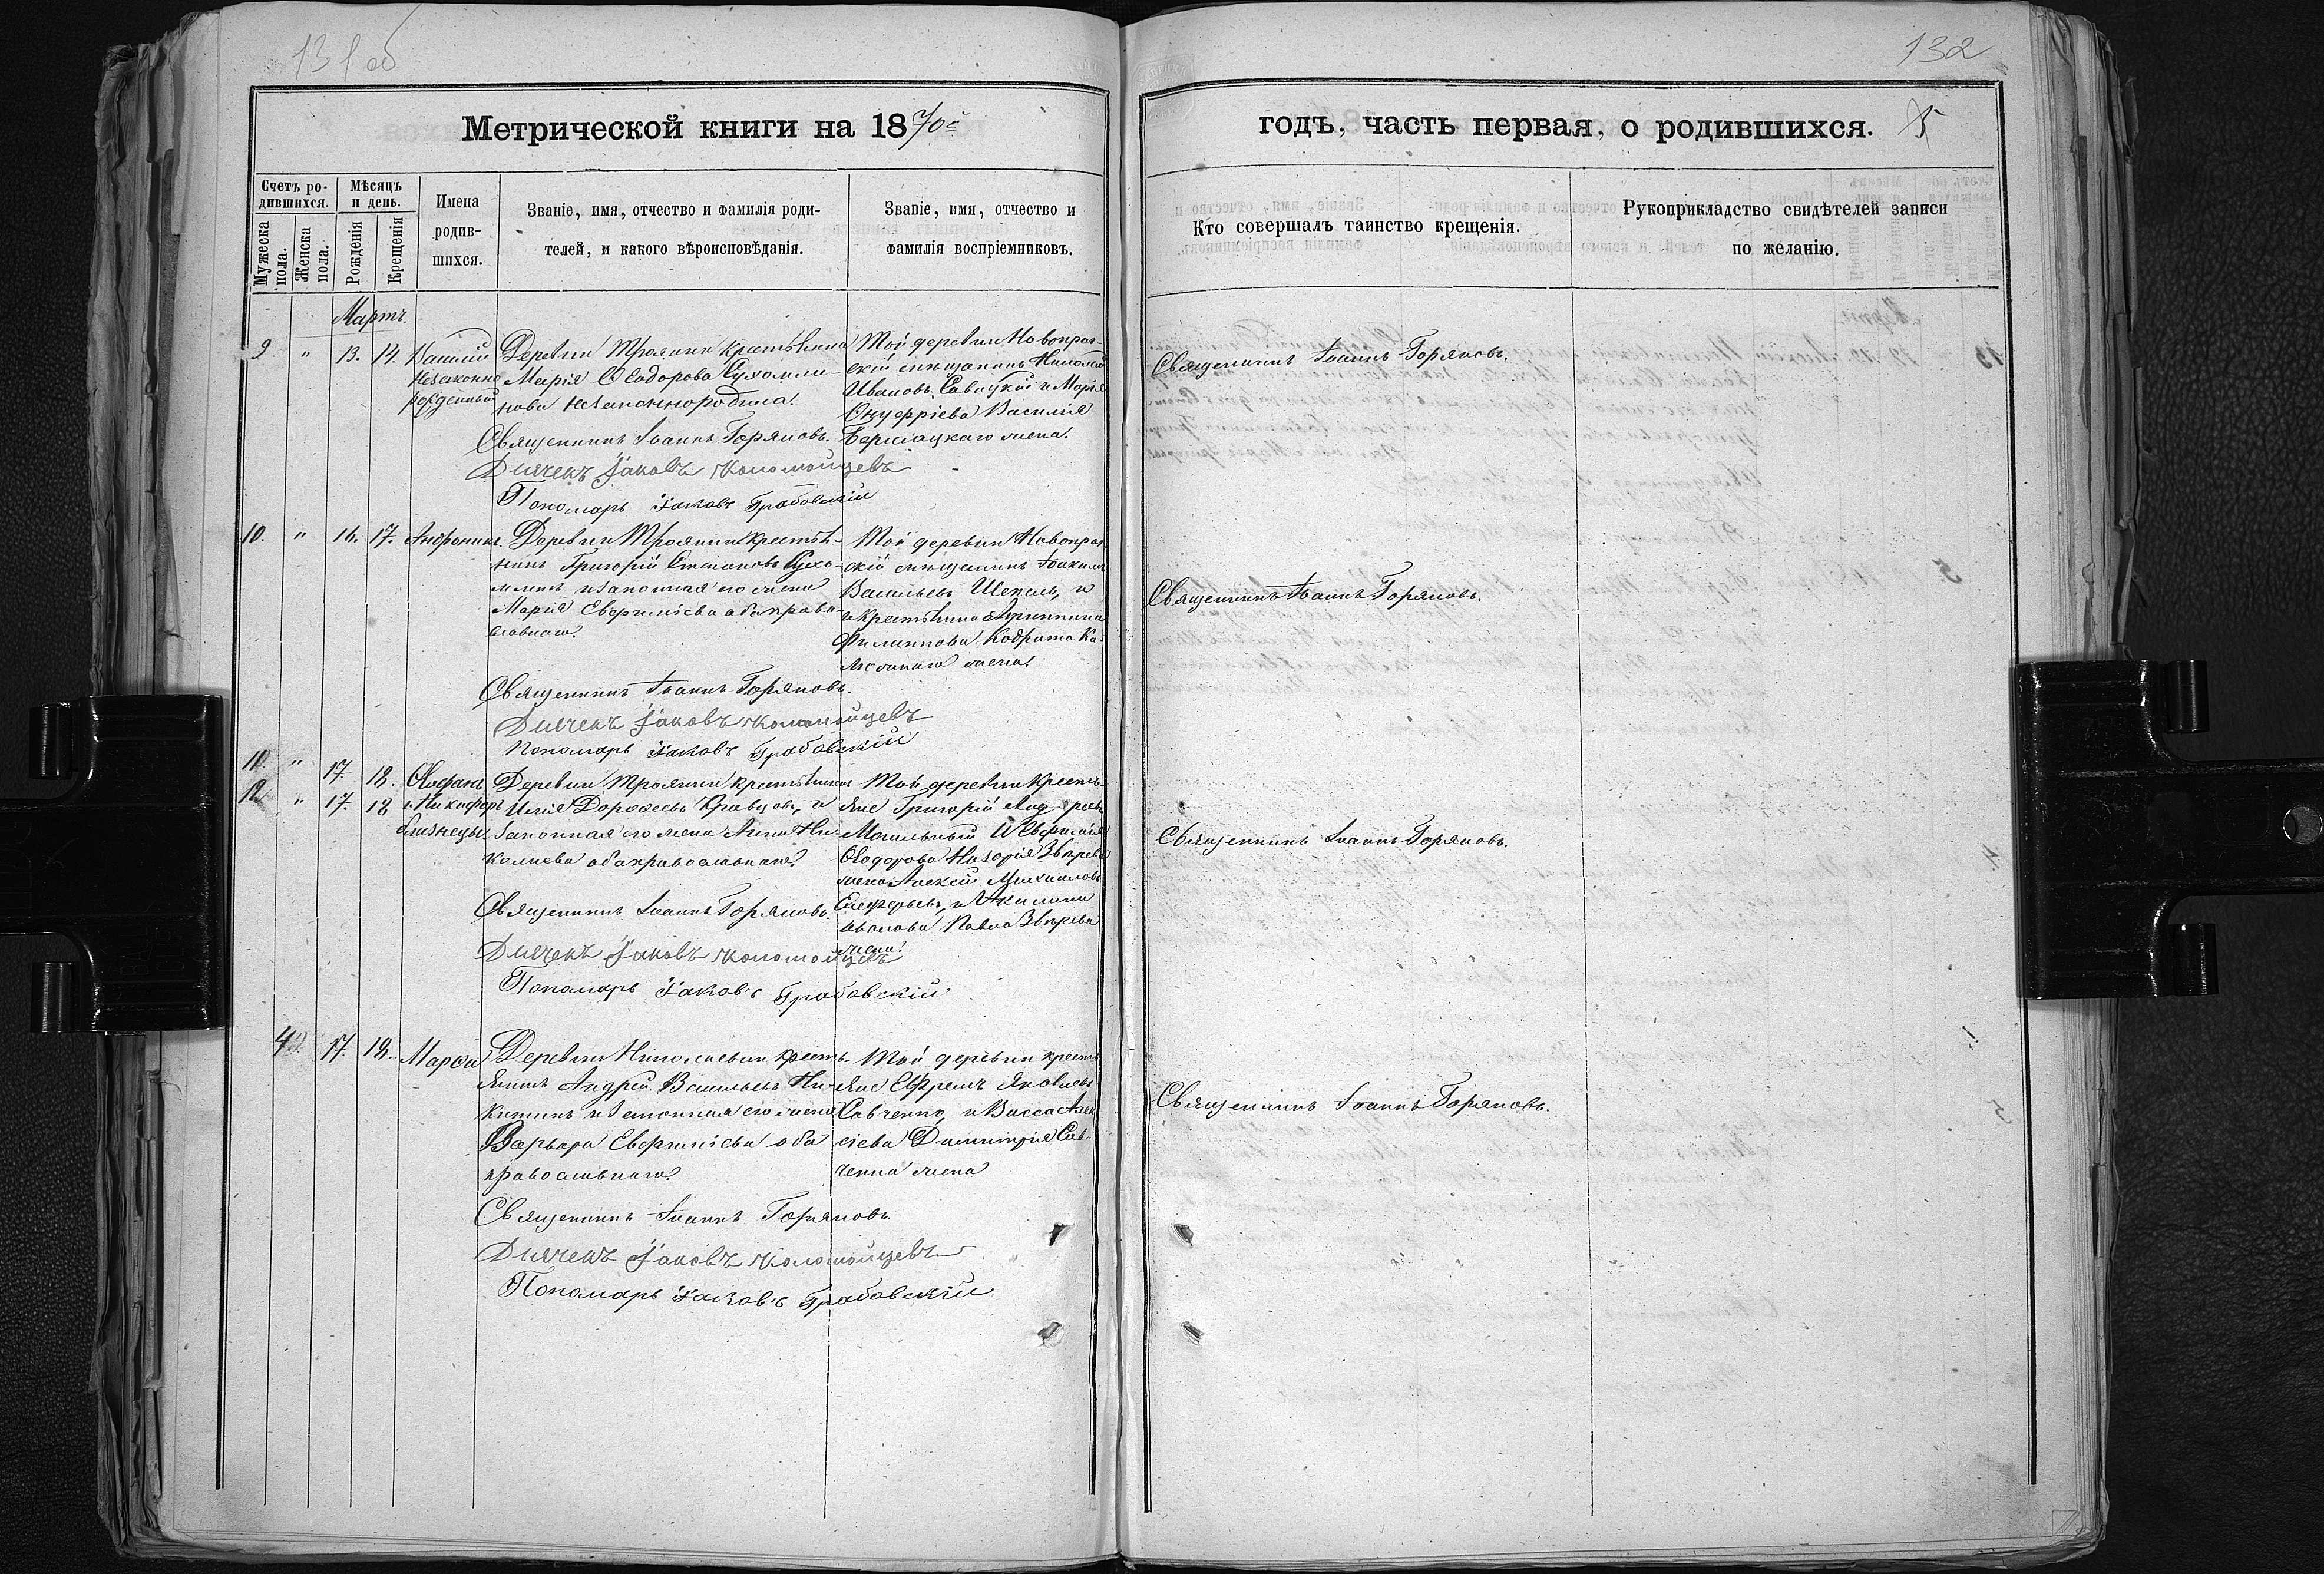 131об
132
Метрической книги на 1870й
годъ, часть первая, о родившихся.
5
Счетъ ро-
дившихся.
Мѣсяцъ
и день.
Мужеска
пола.
Женска
пола.
Рожденія
Крещенія
Имена
родив-
шихся.
Званіе, имя, отчество и фамилія роди-
телей, и какого вѣроисповѣданія.
Званіе, имя, отчество и
фамилія воспріемниковъ.
Кто совершалъ таинство крещенія.
Рукоприкладство свидѣтелей записи
по желанію.
Мартъ.
9 " 13. 14. Василій
незаконно
рожденный
Деревни Троянки крестьянка
Марія Ѳеодорова Сухомли-
нова незаконнородила.
Священникъ Іоаннъ Горяновъ.
Дьячекъ Іаковъ Коломойцевъ
Пономарь Іаковъ Грабовскій
Той деревни Новопраж-
скій мѣщанинъ Николай
Ивановъ Савицкій и Марія
Онуфріева Василія
жена.
Священникъ Іоаннъ Горяновъ.
10. " 16. 17. Андроникъ.
Деревни Троянки крестья-
нинъ Григорій Степановъ Сухо-
млинъ и законная его жена
Марія Евфиміева оба право-
славнаго.
Священникъ Іоаннъ Горяновъ.
Дьячекъ Іаковъ Коломойцевъ
Пономарь Іаковъ Грабовскій
Той деревни Новопраж-
скій мѣщанинъ Іоакимъ
Васильевъ и
и крестьянка Агрипина
Филиппова Кодрата
жена.
Священникъ Іоаннъ Горяновъ.
11. " 17. 18.
12 " 17. 18
и Никифоръ
близнецы
Деревни Троянки крестьянинъ
Илія Дорофеевъ Кравцовъ, и
законная его жена Анна Ни-
колаева оба православнаго.
Священникъ Іоаннъ Горяновъ.
Дьячекъ Іаковъ Коломойцевъ
Пономарь Іаковъ Грабовскій
Той деревни кресть-
яне Григорій Андреевъ
Могильный и Евфимія
Ѳеодорова Назарія Звѣрева
жена Алексій Михаиловъ
и Акилина
Иванова Павла Звѣрева
жена.
Священникъ Іоаннъ Горяновъ.
4. 17. 18. Марѳа
Деревни Николаевки кресть-
янинъ Андрей Васильевъ Ни-
китинъ и законная его жена
Варвара Евфиміева оба
православнаго.
Священникъ Іоаннъ Горяновъ.
Дьячекъ Іаковъ Коломойцевъ
Пономарь Іаковъ Грабовскій
Той деревни кресть-
яне Ефремъ Яковлевъ
Савченко, и Васса Алек-
сіева Димитрія Сав-
ченка жена
Священникъ Іоаннъ Горяновъ.